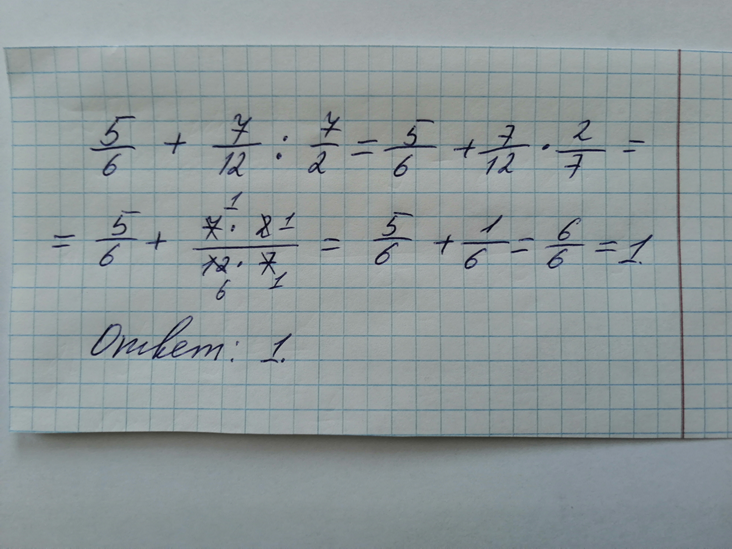 5/6 + 7/12 : 7/2 = 5/6 + 7/12 · 2/7 =
= 5/6 + (7 · 2)/(12 · 7) 1 1 6 1 = 5/6 + 1/6 = 6/6 = 1.
Ответ: 1.